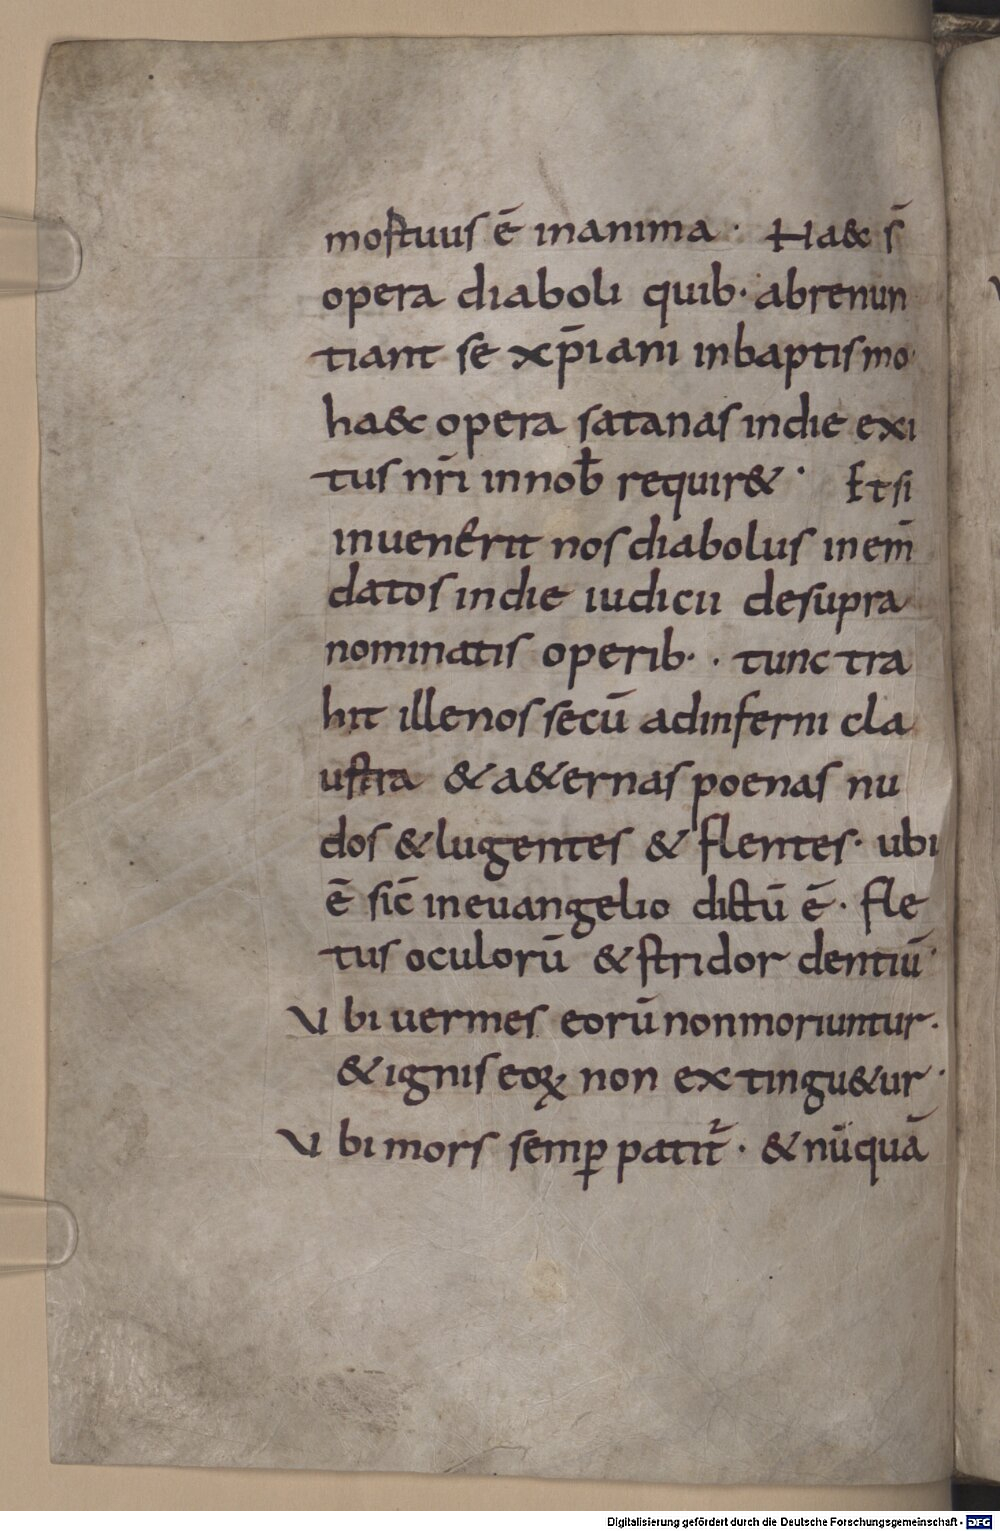 mortuus ē inanima · Ha&c s̄
opera diaboli quib· abrenun
tiant se xp̄iani inbaptismo·
ha&c opera satanas indie exi
tus nr̄i innob̄ requir& · Et si
inuenerit nos diabolus inem̄
datos indie iudicii desupra
nominatis operib· · tunc tra
hit ille nos secū adinferni cla
ustra & a&ernas poenas nu
dos & lugentes & flentes· ubi
ē sic̄ ineuangelio dictū ē · fle
tus oculorū & stridor dentiū·
Ubi uermes eorū nonmoriuntur·
& ignis eoꝝ non extingu&ur·
Ubi mors semꝑ patit᷑ · & nūquā
Digitalisierung gefördert durch die Deutsche Forschungsgemeinschaft - DFG